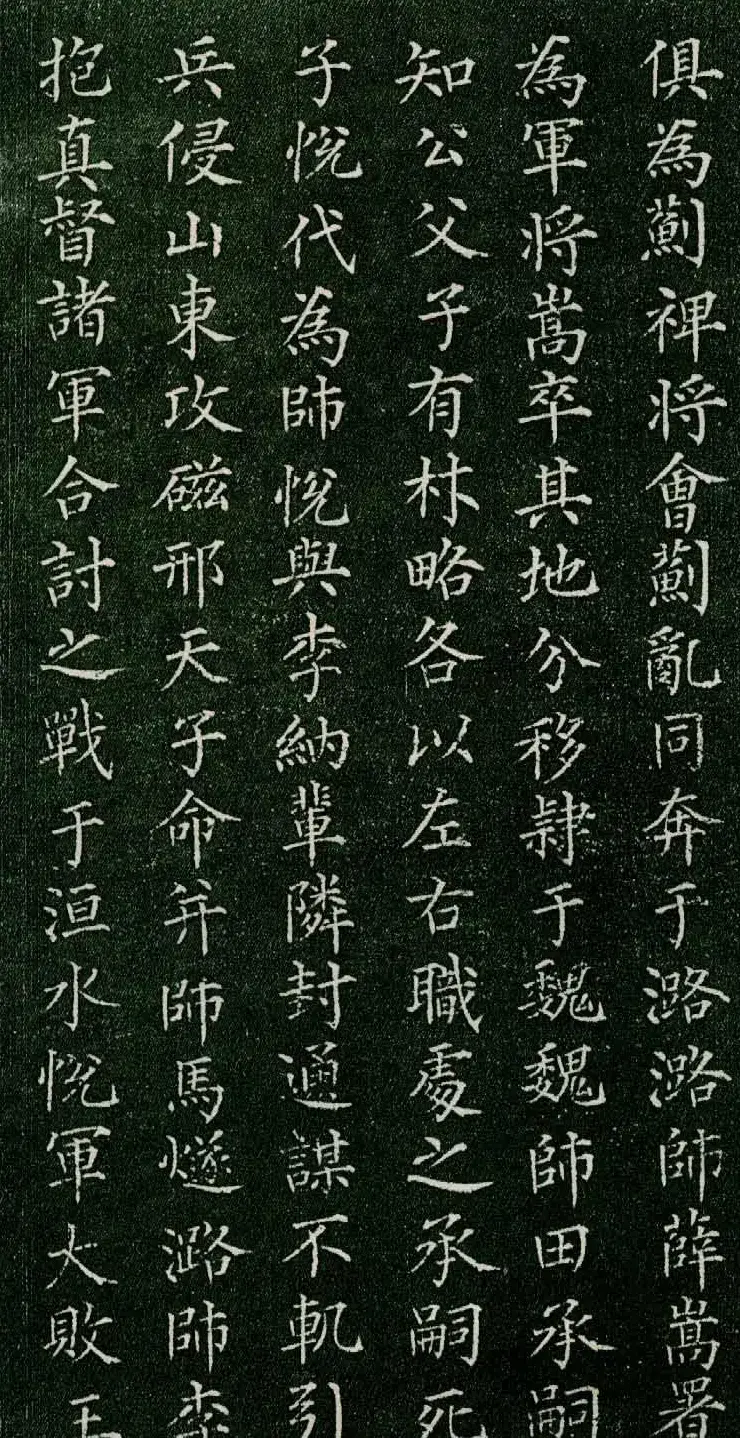 俱為薊裨將會薊亂同奔于潞潞帥薛嵩署
為軍將嵩卒其地分移隸于魏魏帥田承嗣
知公父子有材略各以左右職處之承嗣死
子悅代為帥悅與李納輩隣封通謀不軌引
兵侵山東攻磁邢天子命并帥馬燧潞帥李
抱真督諸軍合討之戰于洹水悅軍大敗王